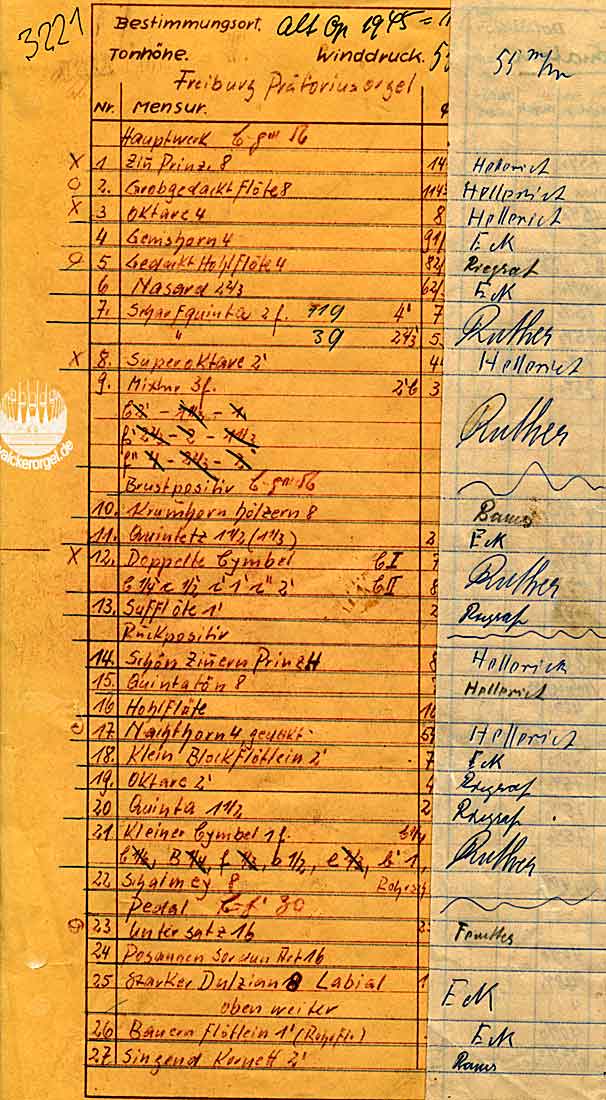 3221 Bestimmungsort. Alt Op 1945 =
Tonhöhe. Winddruck. 55 m/m
Freiburg Prätoriusorgel
Nr. Mensur.
Hauptwerk C-g'''
X 1 Zin Prinz. 8 14 Hellerich
2. Grobgedackt Flöte 8 114 Hellerich
X 3 Oktave 4 8 Hellerich
4 Gemshorn 4 91/ Eck
5 Gedackt Hohlflöte 4 82/ Riegraf
6 Nasard 2 2/3 62/ Eck
7. Scharfquinta 2f. 119 4' 7
" 39 2 2/3 5 Ruther
X 8. Superoktave 2' 4 Hellerich
9. Mixtur 3f. 2' 3
c 2' - 1 1/2 - 1 Ruther
f' 2 2/3 - 2 - 1 1/3
f'' 4 - 2 2/3 - 2
walckerorgel.de
Brustpositiv C-g'''
10. Krumhorn hölzern 8
11. Quintetz 1 1/2 (1 1/3) 2 Eck
X 12. Doppelte Cymbel C I 7
C II 8 Ruther
13. Sufflöte 1' 2 Riegraf
Rückpositiv
14. Schön Zinern Prinz 4 8 Hellerich
15. Quintatön 8 Hellerich
16 Hohlflöte 16
17 Nachthorn 4 gedackt Hellerich
18. Klein Blockflötlein 2' 7 Eck
19. Oktave 2' 4 Riegraf
20 Quinta 1 1/2 2 Riegraf
21 Kleiner Cymbel 1f. Ruther
22 Schalmey 8
Pedal C-f' 30
23 Untersatz 16
24 Posaunen Sordun Art 16
25 Starker Dulzian 8 Labial 1 Eck
oben weiter
26 Bauern Flötlein 1' (Rohrfl.) Eck
27 Singend Kornett 2'